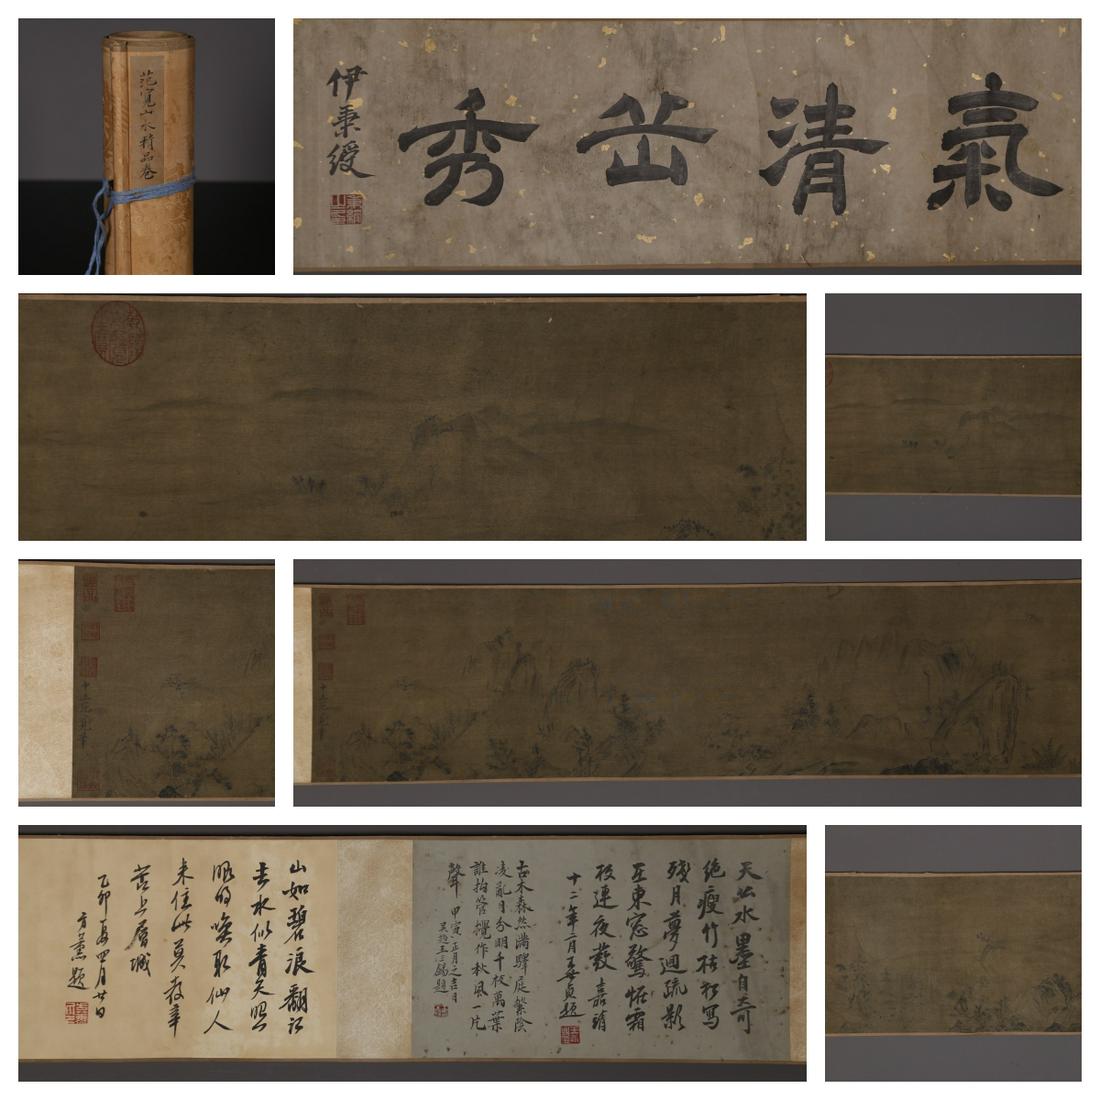 范寬山水精品卷
氣清岳秀
伊秉綬
天公水墨自奇
絶瘦竹枯松寫
殘月夢迴疏影
在東窓驚怪霜
枝連夜發嘉靖
十二年二月王守貞題
古木森然滿驛庭繁陰
凌亂月分明千枝萬葉
誰拍管攪作秋風一片
聲甲寅正月之吉月
吳趨王錫題
山如碧浪翻江
去水似青天照
眼明喚取仙人
來住此莫教辛
苦上層城
乙卯春四月廿日
方熏題